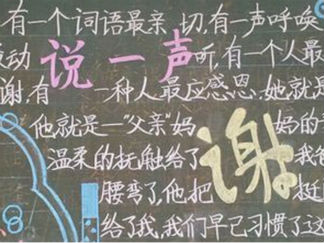 有一个词语最亲切,有一声呼唤
动 说一声 听,有一个人最
谢,有一种人最应感恩,她就是
他就是一"父亲"妈妈的
温柔的抚触给了 谢 我
腰弯了,他把 挺
给了我,我们早已习惯了这